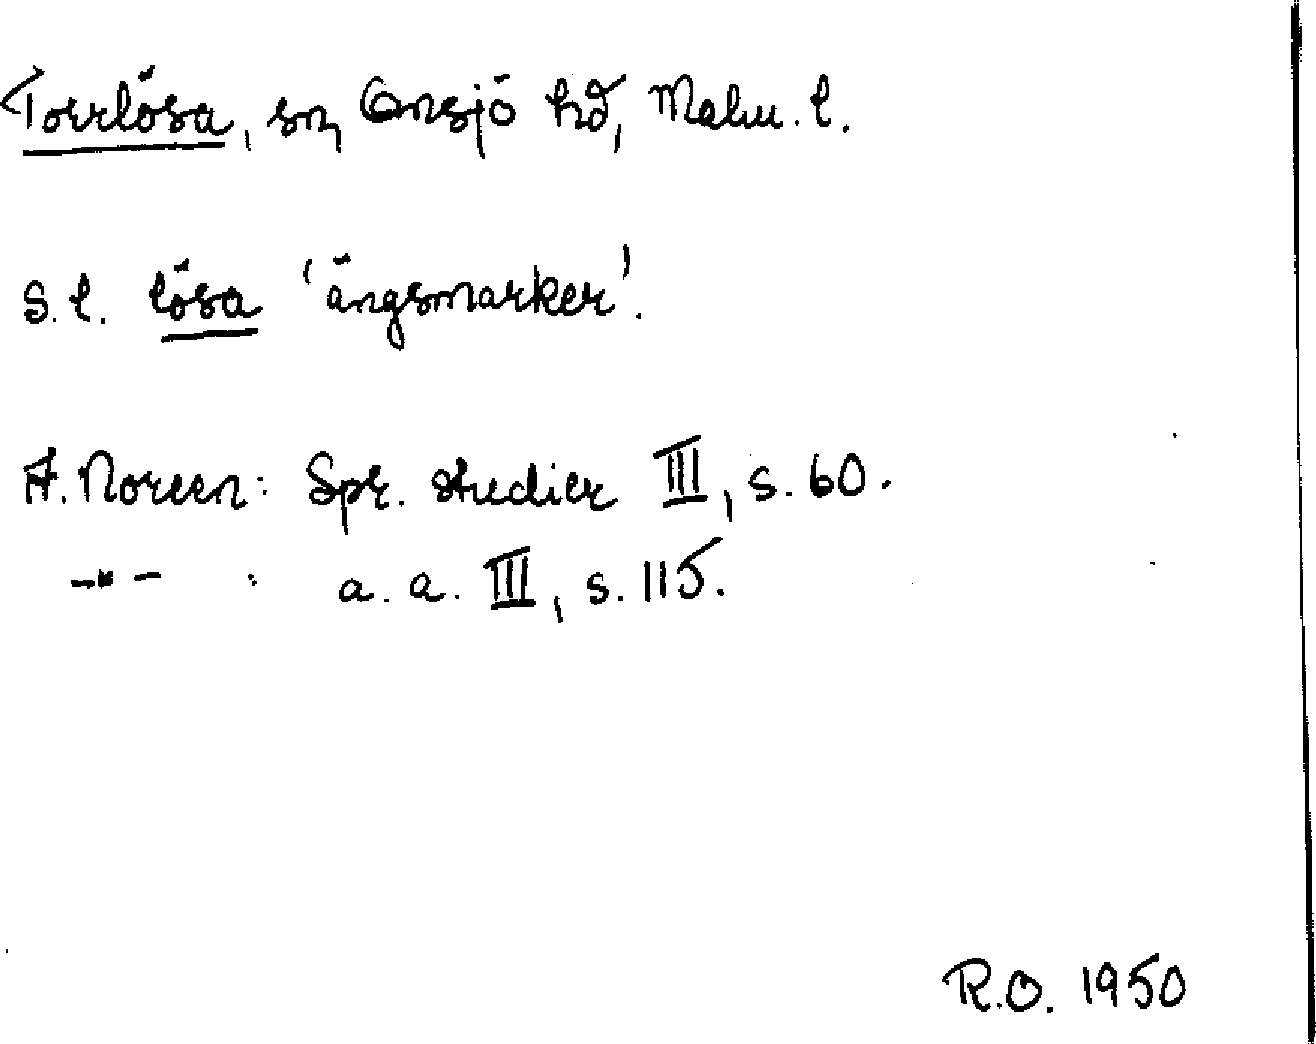 Torrlösa, sn, Onsjö hd, Malm. l.
s.l. lösa 'ängsmarker'.
A. Noreen: Spr. studier III, s. 60.
-"- : a. a. III, s. 115.
R.O. 1950